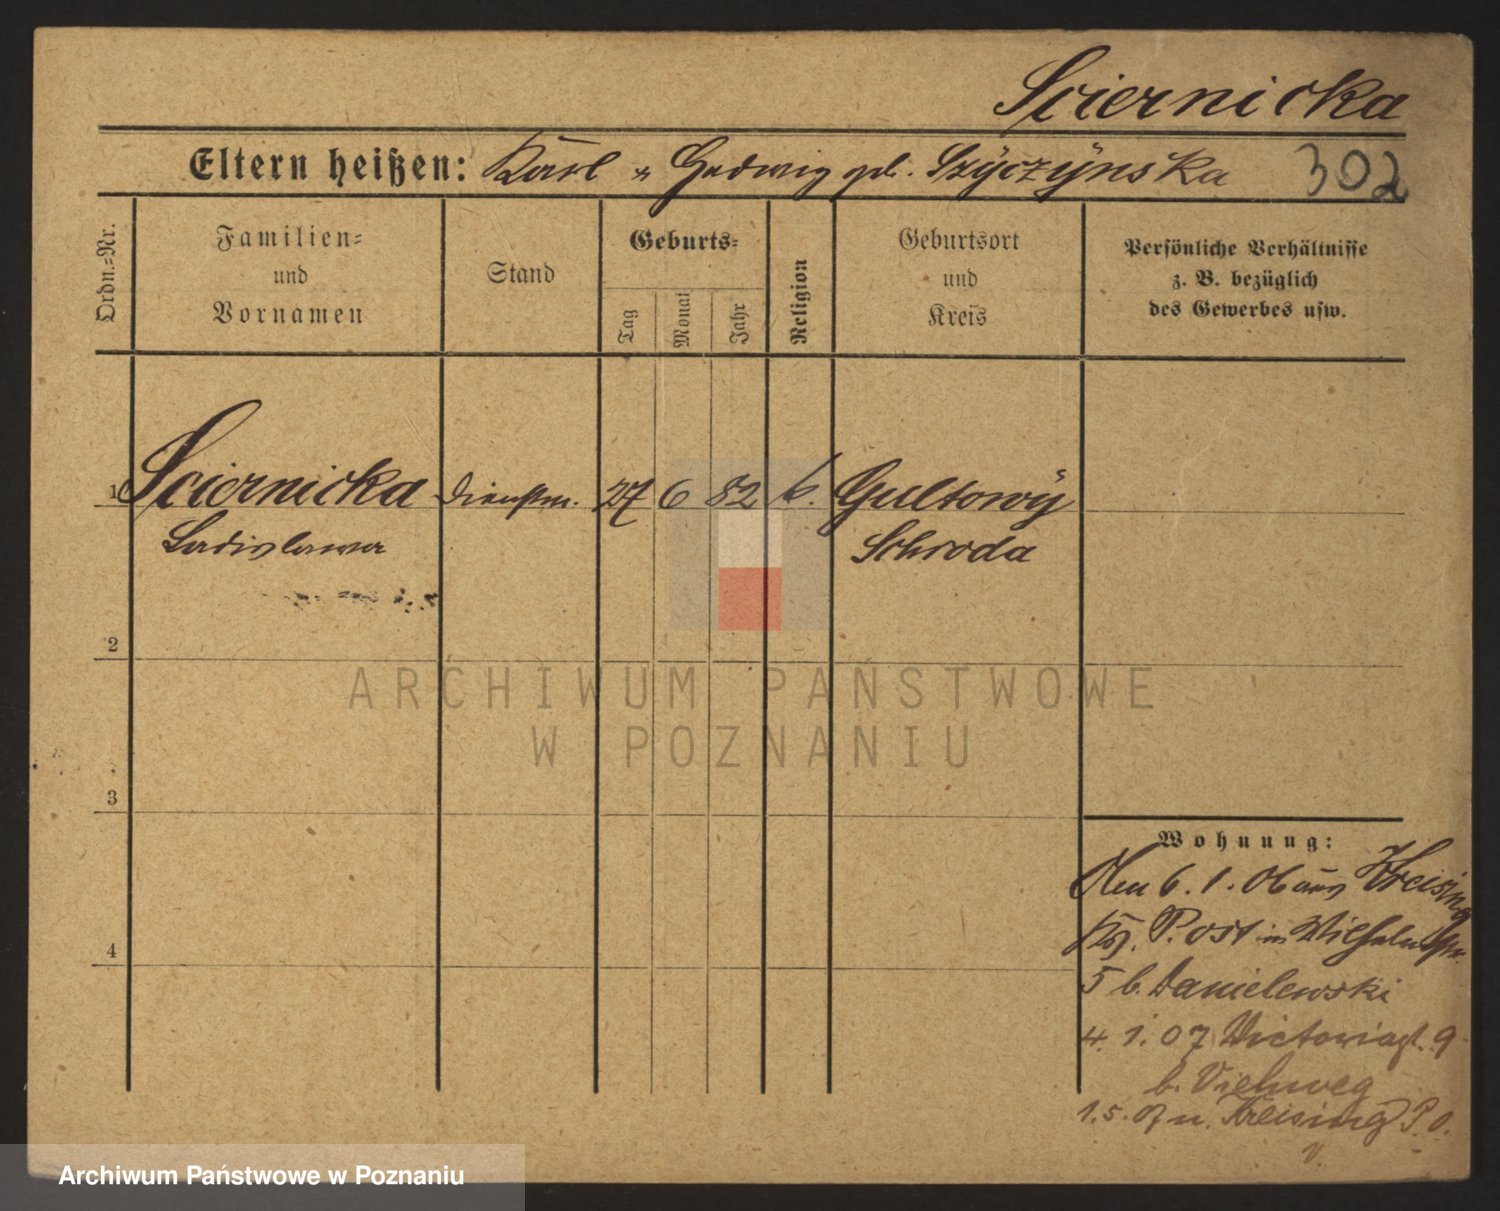 Sciernicka
Eltern heißen: Karl u Hedwig geb. Szÿczÿnska 302
Ordn.=Nr.
Familien=
und
Vornamen
Stand
Geburts=
Tag
Monat
Jahr
Religion
Geburtsort
und
Kreis
Persönliche Verhältnisse
z. B. bezüglich
des Gewerbes usw.
1 Sciernicka Dienstm. 27 6 82 k. Gultowÿ
Ladislawa Schroda
2
3
4
Wohnung:
Den 6. 1. 06 aus Kreising
Krs. P. Ost in Wilhelmstr.
5 b. Danielewski
4. 1. 07 Victoriast. 9
b. Viehweg
1. 5. 07 n. Kreising P. O.
ARCHIWUM PAŃSTWOWE
W POZNANIU
Archiwum Państwowe w Poznaniu